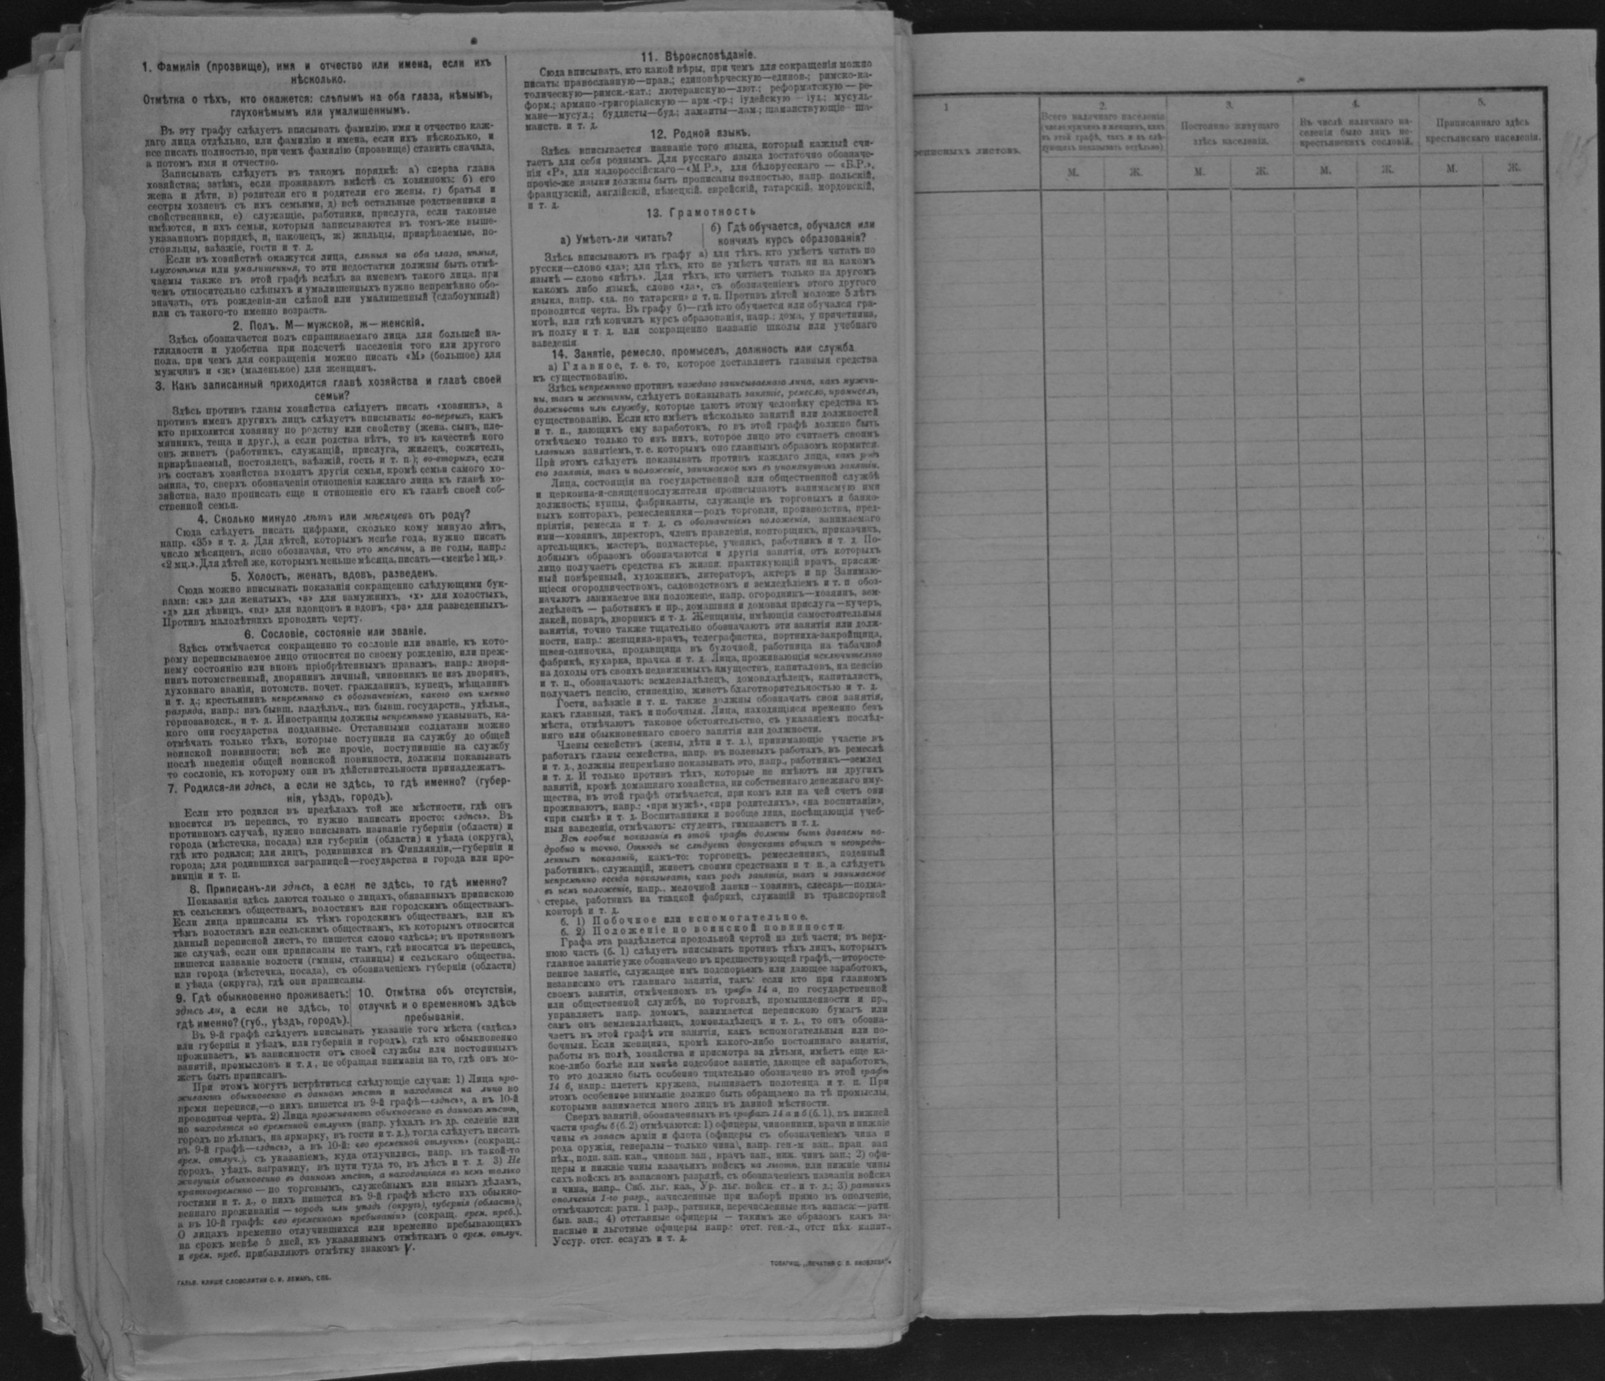 1. Фамилія (прозвище), имя и отчество или имена, если ихъ
нѣсколько.
Отмѣтка о тѣхъ, кто окажется: слѣпымъ на оба глаза, нѣмымъ,
глухонѣмымъ или умалишеннымъ.
Въ эту графу слѣдуетъ вписывать фамилію, имя и отчество каж-
даго лица отдѣльно, или фамилію и имена, если ихъ нѣсколько, и
все писать полностью, при чемъ фамилію (прозвище) ставить сначала,
а потомъ имя и отчество.
Записывать слѣдуетъ въ такомъ порядкѣ: а) сперва глава
хозяйства; затѣмъ, если проживаютъ вмѣстѣ съ хозяиномъ: б) его
жена и дѣти, в) родители его и родители его жены, г) братья и
сестры хозяевъ съ ихъ семьями, д) всѣ остальные родственники и
свойственники, е) служащіе, работники, прислуга, если таковые
имѣются, и ихъ семьи, которыя записываются въ томъ-же выше-
указанномъ порядкѣ, и, наконецъ, ж) жильцы, призрѣваемые, по-
стояльцы, заѣзжіе, гости и т. д.
Если въ хозяйствѣ окажутся лица, слѣпыя на оба глаза, нѣмыя,
глухонѣмыя или умалишенныя, то эти недостатки должны быть отмѣ-
чаемы также въ этой графѣ вслѣдъ за именемъ такого лица, при
чемъ относительно слѣпыхъ и умалишенныхъ нужно непремѣнно обо-
значать, отъ рожденія-ли слѣпой или умалишенный (слабоумный)
или съ такого-то именно возраста.
2. Полъ. М—мужской, ж—женскій.
Здѣсь обозначается полъ спрашиваемаго лица для большей на-
глядности и удобства при подсчетѣ населенія того или другого
пола, при чемъ для сокращенія можно писать «М» (большое) для
мужчинъ и «ж» (маленькое) для женщинъ.
3. Какъ записанный приходится главѣ хозяйства и главѣ своей
семьи?
Здѣсь противъ главы хозяйства слѣдуетъ писать «хозяинъ», а
противъ именъ другихъ лицъ слѣдуетъ вписывать: во-первыхъ, какъ
кто приходится хозяину по родству или свойству (жена, сынъ, пле-
мянникъ, теща и друг.), а если родства нѣтъ, то въ качествѣ кого
онъ живетъ (работникъ, служащій, прислуга, жилецъ, сожитель,
призрѣваемый, постоялецъ, заѣзжій, гость и т. п.); во-вторыхъ, если
въ составъ хозяйства входятъ другія семьи, кромѣ семьи самого хо-
зяина, то, сверхъ обозначенія отношенія каждаго лица къ главѣ хо-
зяйства, надо прописать еще и отношеніе его къ главѣ своей соб-
ственной семьи.
4. Сколько минуло лѣтъ или мѣсяцевъ отъ роду?
Сюда слѣдуетъ писать цифрами, сколько кому минуло лѣтъ,
напр. «35» и т. д. Для дѣтей, которымъ менѣе года, нужно писать
число мѣсяцевъ, ясно обозначая, что это мѣсяцы, а не годы, напр.:
«2 мц.». Для дѣтей же, которымъ меньше мѣсяца, писать—«менѣе 1 мц.»
5. Холостъ, женатъ, вдовъ, разведенъ.
Сюда можно вписывать показанія сокращенно слѣдующими бук-
вами: «ж» для женатыхъ, «з» для замужнихъ, «х» для холостыхъ,
«д» для дѣвицъ, «вд» для вдовцовъ и вдовъ, «рз» для разведенныхъ.
Противъ малолѣтнихъ проводить черту.
6. Сословіе, состояніе или званіе.
Здѣсь отмѣчается сокращенно то сословіе или званіе, къ кото-
рому переписываемое лицо относится по своему рожденію, или преж-
нему состоянію или вновь пріобрѣтеннымъ правамъ, напр.: дворя-
нинъ потомственный, дворянинъ личный, чиновникъ не изъ дворянъ,
духовнаго званія, потомств. почет. гражданинъ, купецъ, мѣщанинъ
и т. д.; крестьянинъ непремѣнно съ обозначеніемъ, какого онъ именно
разряда, напр.: изъ бывш. владѣльч., изъ бывш. государств., удѣльн.,
горнозаводск., и т. д. Иностранцы должны непремѣнно указывать, ка-
кого они государства подданные. Отставными солдатами можно
отмѣчать только тѣхъ, которые поступили на службу до общей
воинской повинности; всѣ же прочіе, поступившіе на службу
послѣ введенія общей воинской повинности, должны показывать
то сословіе, къ которому они въ дѣйствительности принадлежатъ.
7. Родился-ли здѣсь, а если не здѣсь, то гдѣ именно? (губер-
нія, уѣздъ, городъ).
Если кто родился въ предѣлахъ той же мѣстности, гдѣ онъ
вносится въ перепись, то нужно написать просто: «здѣсь». Въ
противномъ случаѣ, нужно вписывать названіе губерніи (области) и
города (мѣстечка, посада) или губерніи (области) и уѣзда (округа),
гдѣ кто родился; для лицъ, родившихся въ Финляндіи,—губернія и
города; для родившихся заграницей—государства и города или про-
винціи и т. п.
8. Приписанъ-ли здѣсь, а если не здѣсь, то гдѣ именно?
Показанія здѣсь даются только о лицахъ, обязанныхъ припискою
къ сельскимъ обществамъ, волостямъ или городскимъ обществамъ.
Если лица приписаны къ тѣмъ городскимъ обществамъ, или къ
тѣмъ волостямъ или сельскимъ обществамъ, къ которымъ относится
данный переписной листъ, то пишется слово «здѣсь»; въ противномъ
же случаѣ, если они приписаны не тамъ, гдѣ вносятся въ перепись,
пишется названіе волости (гмины, станицы) и сельскаго общества,
или города (мѣстечка, посада), съ обозначеніемъ губерніи (области)
и уѣзда (округа), гдѣ они приписаны.
9. Гдѣ обыкновенно проживаетъ:
здѣсь ли, а если не здѣсь, то
гдѣ именно? (губ., уѣздъ, городъ).
10. Отмѣтка объ отсутствіи,
отлучкѣ и о временномъ здѣсь
пребываніи.
Въ 9-й графѣ слѣдуетъ вписывать указаніе того мѣста («здѣсь»
или губернія и уѣздъ, или губернія и городъ), гдѣ кто обыкновенно
проживаетъ, въ зависимости отъ своей службы или постоянныхъ
занятій, промысловъ и т. д., не обращая вниманія на то, гдѣ онъ мо-
жетъ быть приписанъ.
При этомъ могутъ встрѣтиться слѣдующіе случаи: 1) Лица про-
живаютъ обыкновенно въ данномъ мѣстѣ и находятся на лицо во
время переписи,—о нихъ пишется въ 9-й графѣ—«здѣсь», а въ 10-й
проводится черта. 2) Лица проживаютъ обыкновенно въ данномъ мѣстѣ,
но находятся во временной отлучкѣ (напр. уѣхалъ въ др. селеніе или
городъ по дѣламъ, на ярмарку, въ гости и т. д.), тогда слѣдуетъ писать
въ 9-й графѣ—«здѣсь», а въ 10-й: «во временной отлучкѣ» (сокращ.:
врем. отлуч.), съ указаніемъ, куда отлучились, напр. въ такой-то
городъ, уѣздъ, заграницу, въ пути туда то, въ лѣсъ и т. д. 3) Не
живущія обыкновенно въ данномъ мѣстѣ, а находящіяся въ немъ только
кратковременно — по торговымъ, служебнымъ или инымъ дѣламъ,
гостями и т. д., о нихъ пишется въ 9-й графѣ мѣсто ихъ обыкно-
веннаго проживанія — городъ или уѣздъ (округъ), губернія (область),
а въ 10-й графѣ: «во временномъ пребываніи» (сокращ. врем. преб.).
О лицахъ временно отлучившихся или временно пребывающихъ
на срокъ менѣе 5 дней, къ указаннымъ отмѣткамъ о врем. отлуч.
и врем. преб. прибавляютъ отмѣтку знакомъ V.
ГАЛЬВ. КЛИШЕ СЛОВОЛИТНИ О. И. ЛЕМАНЪ, СПБ.
11. Вѣроисповѣданіе.
Сюда вписывать, кто какой вѣры, при чемъ для сокращенія можно
писать: православную—прав.; единовѣрческую—единов.; римско-ка-
толическую—римск.-кат.; лютеранскую—лют.; реформатскую — ре-
форм.; армяно-григоріанскую — арм.-гр.; іудейскую — іуд.; мусуль-
мане—мусул.; буддисты—буд.; ламаиты—лам.; шаманствующіе—ша-
манств. и т. д.
12. Родной языкъ.
Здѣсь вписывается названіе того языка, который каждый счи-
таетъ для себя роднымъ. Для русскаго языка достаточно обозначе-
нія «Р», для малороссійскаго—«М.Р.», для бѣлорусскаго — «Б.Р.»,
прочіе-же языки должны быть прописаны полностью, напр. польскій,
французскій, англійскій, нѣмецкій, еврейскій, татарскій, мордовскій,
и т. д.
13. Грамотность
а) Умѣетъ-ли читать?
б) Гдѣ обучается, обучался или
кончилъ курсъ образованія?
Здѣсь вписываютъ въ графу а) для тѣхъ, кто умѣетъ читать по
русски—слово «да»; для тѣхъ, кто не умѣетъ читать ни на какомъ
языкѣ — слово «нѣтъ». Для тѣхъ, кто читаетъ только на другомъ
какомъ либо языкѣ, слово «да», съ обозначеніемъ этого другого
языка, напр. «да, по татарски» и т. п. Противъ дѣтей моложе 5 лѣтъ
проводится черта. Въ графу б)—гдѣ кто обучается или обучался гра-
мотѣ, или гдѣ кончилъ курсъ образованія, напр.: дома, у причетника,
въ полку и т. д. или сокращенно названіе школы или учебнаго
заведенія.
14. Занятіе, ремесло, промыселъ, должность или служба
а) Главное, т. е. то, которое доставляетъ главныя средства
къ существованію.
Здѣсь непремѣнно противъ каждаго записываемаго лица, какъ мужчи-
ны, такъ и женщины, слѣдуетъ показывать занятіе, ремесло, промыселъ,
должность или службу, которые даютъ этому человѣку средства къ
существованію. Если кто имѣетъ нѣсколько занятій или должностей
и т. п., дающихъ ему заработокъ, то въ этой графѣ должно быть
отмѣчаемо только то изъ нихъ, которое лицо это считаетъ своимъ
главнымъ занятіемъ, т. е. которымъ оно главнымъ образомъ кормится.
При этомъ слѣдуетъ показывать противъ каждаго лица, какъ родъ
его занятія, такъ и положеніе, занимаемое имъ въ упомянутомъ занятіи.
Лица, состоящія на государственной или общественной службѣ
и церковно-и-священнослужители прописываютъ занимаемую ими
должность; купцы, фабриканты, служащіе въ торговыхъ и банко-
выхъ конторахъ, ремесленники—родъ торговли, производства, пред-
пріятія, ремесла и т. д. съ обозначеніемъ положенія, занимаемаго
ими—хозяинъ, директоръ, членъ правленія, конторщикъ, приказчикъ,
артельщикъ, мастеръ, подмастерье, ученикъ, работникъ и т. д. По-
добнымъ образомъ обозначаются и другія занятія, отъ которыхъ
лицо получаетъ средства къ жизни: практикующій врачъ, присяж-
ный повѣренный, художникъ, литераторъ, актеръ и пр. Занимаю-
щіеся огородничествомъ, садоводствомъ и земледѣліемъ и т. п. обоз-
начаютъ занимаемое ими положеніе, напр. огородникъ—хозяинъ, зем-
ледѣлецъ — работникъ и пр., домашняя и домовая прислуга—кучеръ,
лакей, поваръ, дворникъ и т. д. Женщины, имѣющія самостоятельныя
занятія, точно также тщательно обозначаютъ эти занятія или долж-
ности, напр.: женщина-врачъ, телеграфистка, портниха-закройщица,
швея-одиночка, продавщица въ булочной, работница на табачной
фабрикѣ, кухарка, прачка и т. д. Лица, проживающія исключительно
на доходы отъ своихъ недвижимыхъ имуществъ, капиталовъ, на пенсію
и т. п., обозначаютъ: землевладѣлецъ, домовладѣлецъ, капиталистъ,
получаетъ пенсію, стипендію, живетъ благотворительностью и т. д.
Гости, заѣзжіе и т. п. также должны обозначать свои занятія,
какъ главныя, такъ и побочныя. Лица, находящіяся временно безъ
мѣста, отмѣчаютъ таковое обстоятельство, съ указаніемъ послѣд-
няго или обыкновеннаго своего занятія или должности.
Члены семействъ (жены, дѣти и т. д.), принимающіе участіе въ
работахъ главы семейства, напр. въ полевыхъ работахъ, въ ремеслѣ
и т. д., должны непремѣнно показывать это, напр., работникъ—землед.
и т. д. И только противъ тѣхъ, которые не имѣютъ ни другихъ
занятій, кромѣ домашняго хозяйства, ни собственнаго денежнаго иму-
щества, въ этой графѣ отмѣчается, при комъ или на чей счетъ они
проживаютъ, напр.: «при мужѣ», «при родителяхъ», «на воспитаніи»,
«при сынѣ» и т. д. Воспитанники и вообще лица, посѣщающія учеб-
ныя заведенія, отмѣчаютъ: студентъ, гимназистъ и т. д.
Всѣ вообще показанія въ этой графѣ должны быть даваемы по-
дробно и точно. Отнюдь не слѣдуетъ допускать общихъ и неопредѣ-
ленныхъ показаній, какъ-то: торговецъ, ремесленникъ, поденный
работникъ, служащій, живетъ своими средствами и т. п., а слѣдуетъ
непремѣнно всегда показывать, какъ родъ занятія, такъ и занимаемое
въ немъ положеніе, напр., мелочной лавки—хозяинъ, слесарь—подма-
стерье, работникъ на ткацкой фабрикѣ, служащій въ транспортной
конторѣ и т. д.
б. 1) Побочное или вспомогательное.
б. 2) Положеніе по воинской повинности
Графа эта раздѣляется продольной чертой на двѣ части; въ верх-
нюю часть (б. 1) слѣдуетъ вписывать противъ тѣхъ лицъ, которыхъ
главное занятіе уже обозначено въ предшествующей графѣ,—второсте-
пенное занятіе, служащее имъ подспорьемъ или дающее заработокъ,
независимо отъ главнаго занятія, такъ: если кто при главномъ
своемъ занятіи, отмѣченномъ въ графѣ 14 а, по государственной
или общественной службѣ, по торговлѣ, промышленности и пр.,
управляетъ напр. домомъ, занимается перепискою бумагъ или
самъ онъ землевладѣлецъ, домовладѣлецъ и т. д., то онъ обозна-
чаетъ въ этой графѣ эти занятія, какъ вспомогательныя или по-
бочныя. Если женщина, кромѣ какого-либо постояннаго занятія,
работы въ полѣ, хозяйства и присмотра за дѣтьми, имѣетъ еще ка-
кое-либо болѣе или менѣе подсобное занятіе, дающее ей заработокъ,
то это должно быть особенно тщательно обозначено въ этой графѣ
14 б, напр.: плететъ кружева, вышиваетъ полотенца и т. п. При
этомъ особенное вниманіе должно быть обращаемо на тѣ промыслы,
которыми занимается много лицъ въ данной мѣстности.
Сверхъ занятій, обозначенныхъ въ графахъ 14 а и б (б. 1), въ нижней
части графы б (б. 2) отмѣчаются: 1) офицеры, чиновники, врачи и нижніе
чины въ запасѣ арміи и флота (офицеры съ обозначеніемъ чина и
рода оружія, генералы—только чина), напр. ген.-м. зап., прап. зап.
пѣх., подп. зап. кав., чиновн. зап., врачъ зап., нижн. чинъ зап.; 2) офи-
церы и нижніе чины казачьихъ войскъ на льготѣ, или нижніе чины
сихъ войскъ въ запасномъ разрядѣ, съ обозначеніемъ названія войска
и чина, напр., Сиб. льг. каз., Ур. льг. войск. ст. и т. д.; 3) ратники
ополченія 1-го разр., зачисленные при наборѣ прямо въ ополченіе,
отмѣчаются: ратн. 1 разр., ратники, перечисленные изъ запаса:—ратн.
быв. зап.; 4) отставные офицеры — такимъ же образомъ какъ за-
пасные и льготные офицеры напр.: отст. ген.-л., отст. пѣх. капит.,
Уссур. отст. есаулъ и т. д.
ТОВАРИЩ. „ПЕЧАТНЯ С. П. ЯКОВЛЕВА“
1
2.
3.
4.
5.
реписныхъ листовъ.
Всего наличнаго населенія
(число мужчинъ и женщинъ, какъ
въ этой графѣ, такъ и въ слѣ-
дующихъ показывать отдѣльно)
Постоянно живущаго
здѣсь населенія.
Въ числѣ наличнаго на-
селенія было лицъ не-
крестьянскихъ сословій.
Приписаннаго здѣсь
крестьянскаго населенія.
М. Ж. М. Ж. М. Ж. М. Ж.